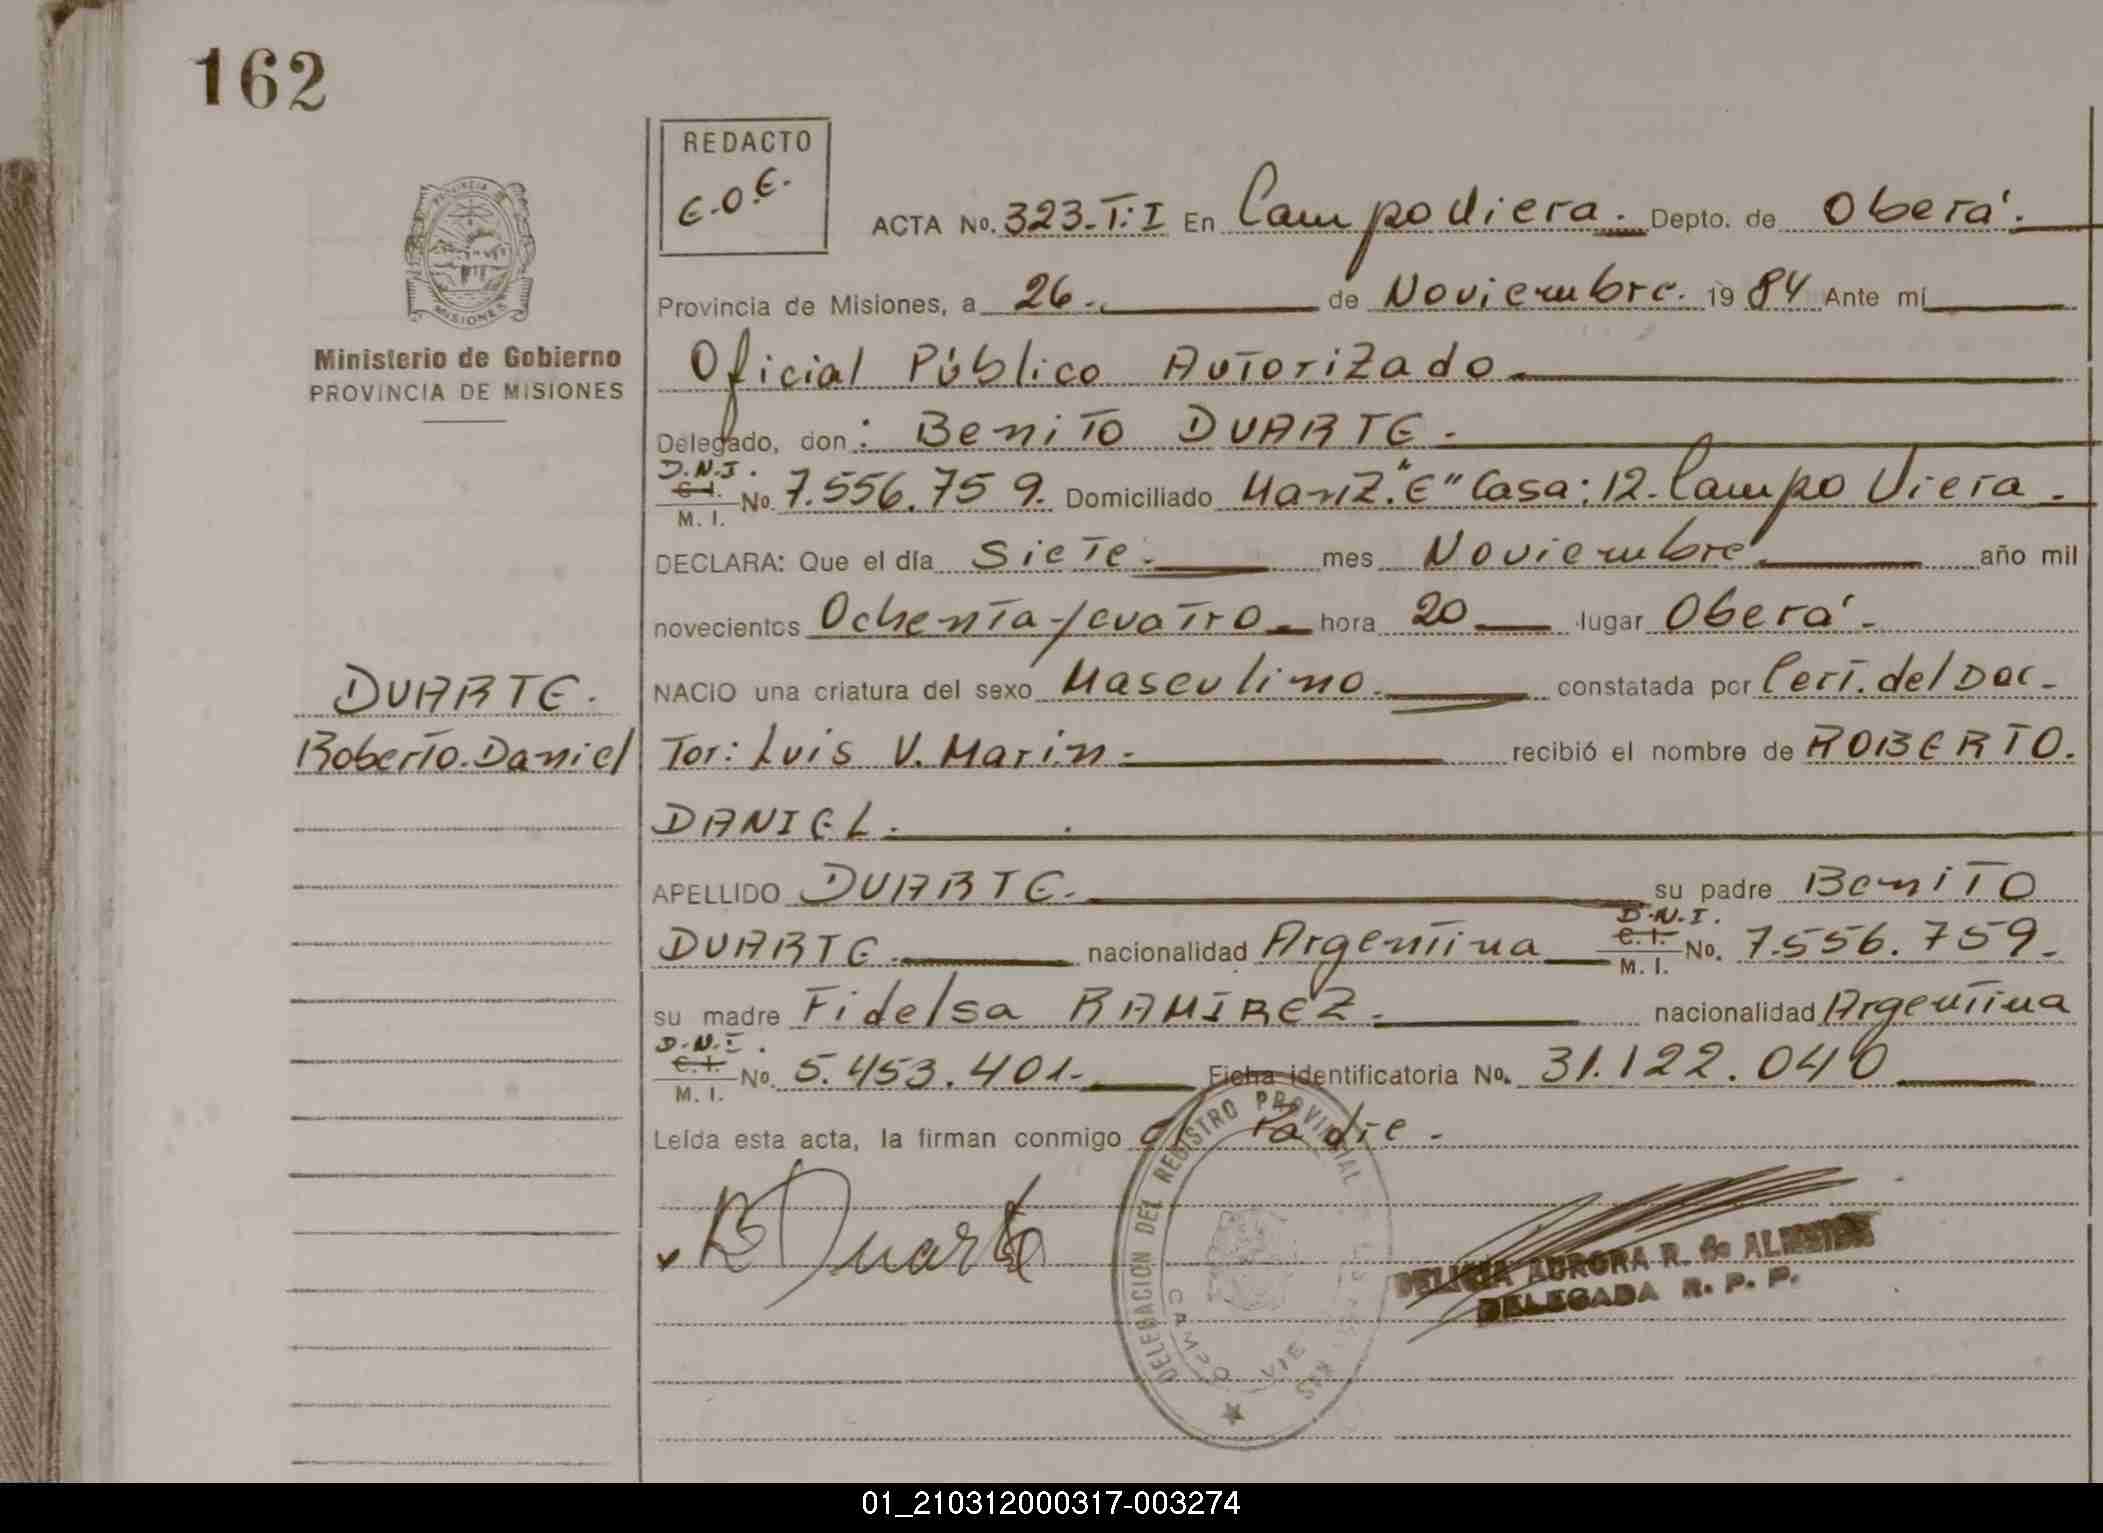 162
REDACTO
E.O.E.
ACTA No. 323.T:I En Campo Viera. Depto. de Oberá.
PROVINCIA
MISIONES
Provincia de Misiones, a 26. de Noviembre. 19 84 Ante mí
Ministerio de Gobierno
PROVINCIA DE MISIONES
Oficial Público Autorizado
Delegado, don: Benito DUARTE.
D.N.I.
C.I.
M. I. No. 7.556.759. Domiciliado Manz."E" Casa:12. Campo Viera.
DECLARA: Que el día Siete. mes Noviembre año mil
novecientos Ochenta y cuatro hora 20 lugar Oberá.
DUARTE.
Roberto.Daniel
NACIO una criatura del sexo Masculino. constatada por Cert. del Doc-
tor: Luis V. Marin. recibió el nombre de ROBERTO.
DANIEL.
APELLIDO DUARTE. su padre Benito
DUARTE nacionalidad Argentina D.N.I. C.I. M. I. No. 7.556.759.
su madre Fidelsa RAMIREZ. nacionalidad Argentina
D.N.I.
C.I.
M. I. No. 5.453.401. Ficha identificatoria No. 31.122.040
Leída esta acta, la firman conmigo el Padre.
B Duarte
DELEGACION DEL REGISTRO PROVINCIAL
CAMPO VIE
DELICIA AURORA R. de
DELEGADA R. P. P.
01_210312000317-003274